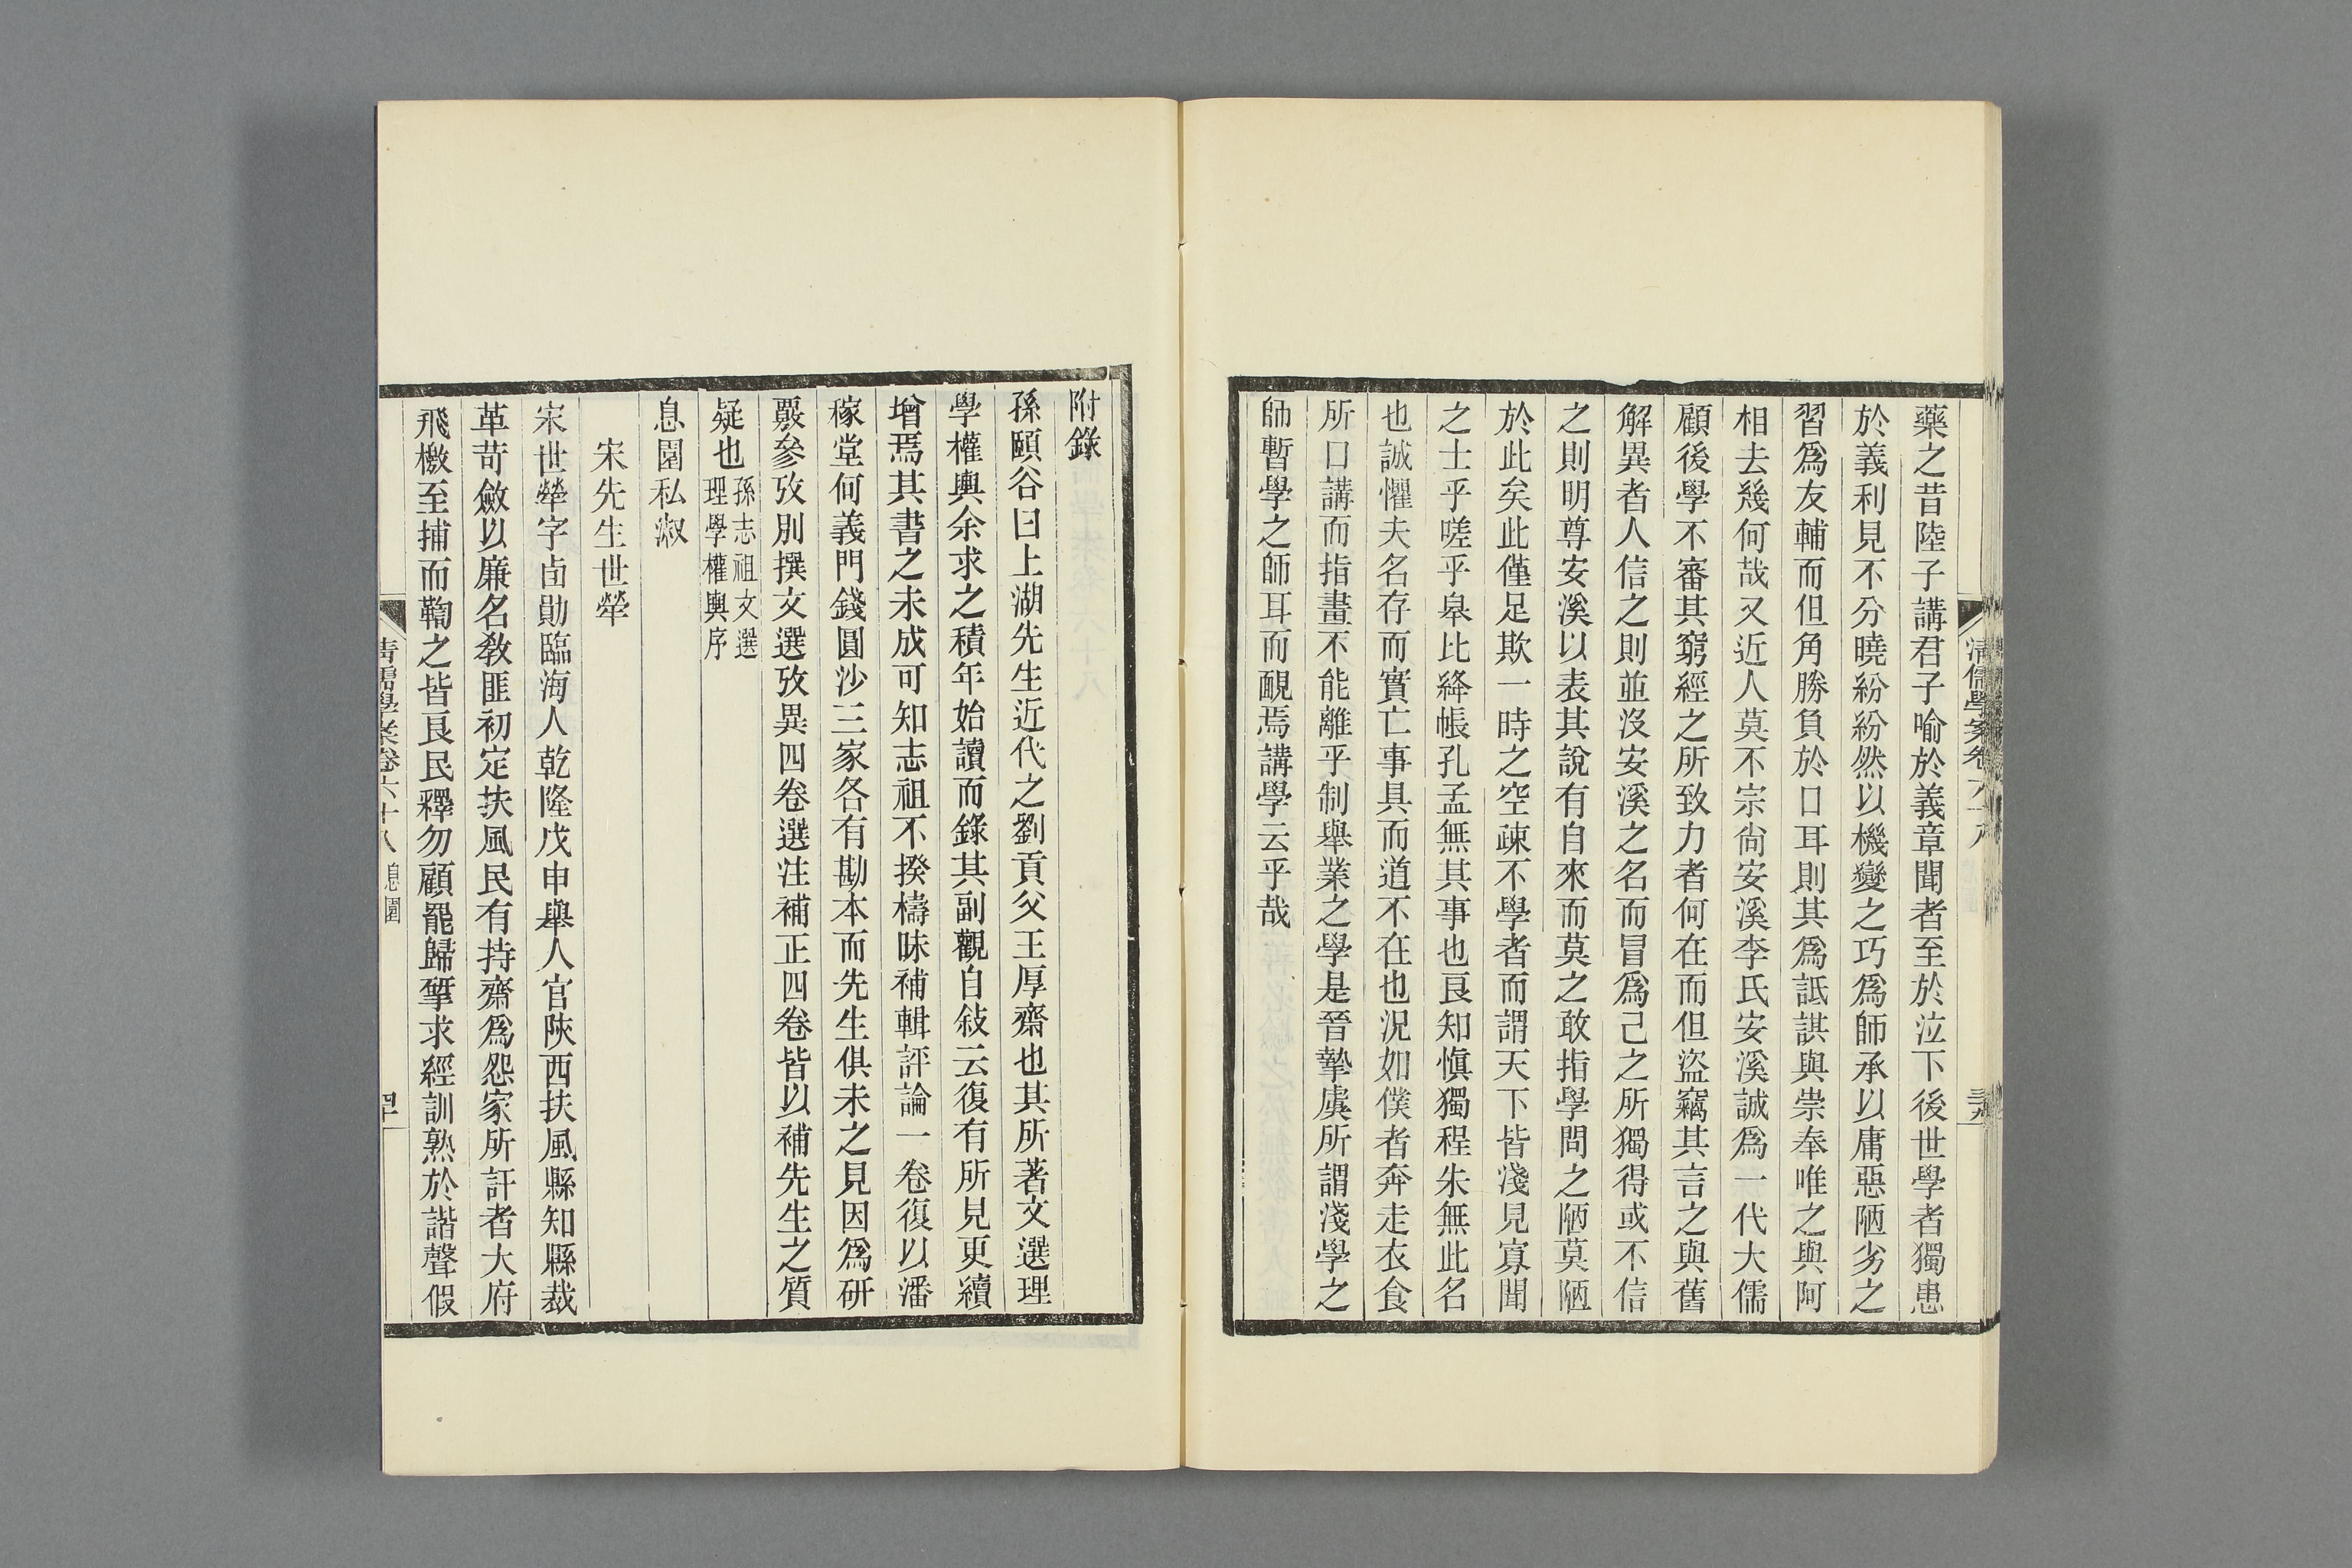 藥之昔陸子講君子喻於義章聞者至於泣下後世學者獨患
於義利見不分曉紛紛然以機變之巧爲師承以庸惡陋劣之
習爲友輔而但角勝負於口耳則其爲詆諆與崇奉唯之與阿
相去幾何哉又近人莫不宗尙安溪李氏安溪誠爲一代大儒
顧後學不審其窮經之所致力者何在而但盜竊其言之與舊
解異者人信之則並沒安溪之名而冒爲己之所獨得或不信
之則明尊安溪以表其說有自來而莫之敢指學問之陋莫陋
於此矣此僅足欺一時之空疎不學者而謂天下皆淺見寡聞
之士乎嗟乎皋比絳帳孔孟無其事也良知愼獨程朱無此名
也誠懼夫名存而實亡事具而道不在也況如僕者奔走衣食
所口講而指畫不能離乎制舉業之學是晉摯虞所謂淺學之
師暫學之師耳而靦焉講學云乎哉
清儒學案卷六十八
附錄
孫頤谷曰上湖先生近代之劉貢父王厚齋也其所著文選理
學權輿余求之積年始讀而錄其副觀自敍云復有所見更續
增焉其書之未成可知志祖不揆檮昧補輯評論一卷復以潘
稼堂何義門錢圓沙三家各有勘本而先生俱未之見因爲研
覈參攷別撰文選攷異四卷選注補正四卷皆以補先生之質
疑也孫志祖文選理學權輿序
息園私淑
宋先生世犖
宋世犖字卣勛臨海人乾隆戊申舉人官陝西扶風縣知縣裁
革苛斂以廉名敎匪初定扶風民有持齋爲怨家所訐者大府
飛檄至捕而鞫之皆良民釋勿顧罷歸揅求經訓熟於諧聲假
清儒學案卷六十八 息園